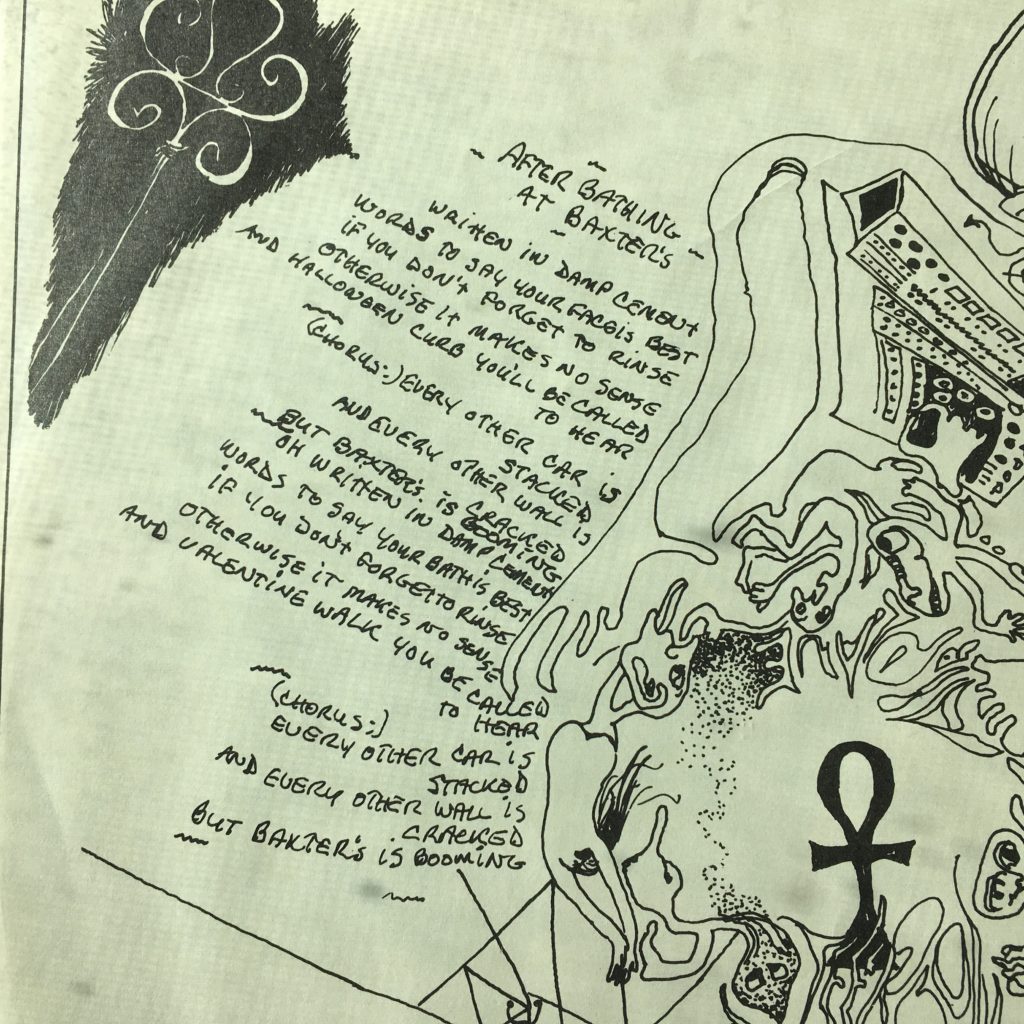 ~ AFTER BATHING ~
AT BAXTER'S
~
WRITTEN IN DAMP CEMENT
WORDS TO SAY YOUR FACE IS BEST
IF YOU DON'T FORGET TO RINSE
OTHERWISE IT MAKES NO SENSE
AND HALLOWEEN CURB YOU'LL BE CALLED
TO HEAR
(CHORUS:) EVERY OTHER CAR IS
STACKED
AND EVERY OTHER WALL IS
CRACKED
BUT BAXTER'S IS BOOMING
OH WRITTEN IN DAMP CEMENT
WORDS TO SAY YOUR BATH IS BEST
IF YOU DON'T FORGET TO RINSE
OTHERWISE IT MAKES NO SENSE
AND VALENTINE WALK YOU BE CALLED
TO HEAR
(CHORUS:)
EVERY OTHER CAR IS
STACKED
AND EVERY OTHER WALL IS
CRACKED
BUT BAXTER'S IS BOOMING